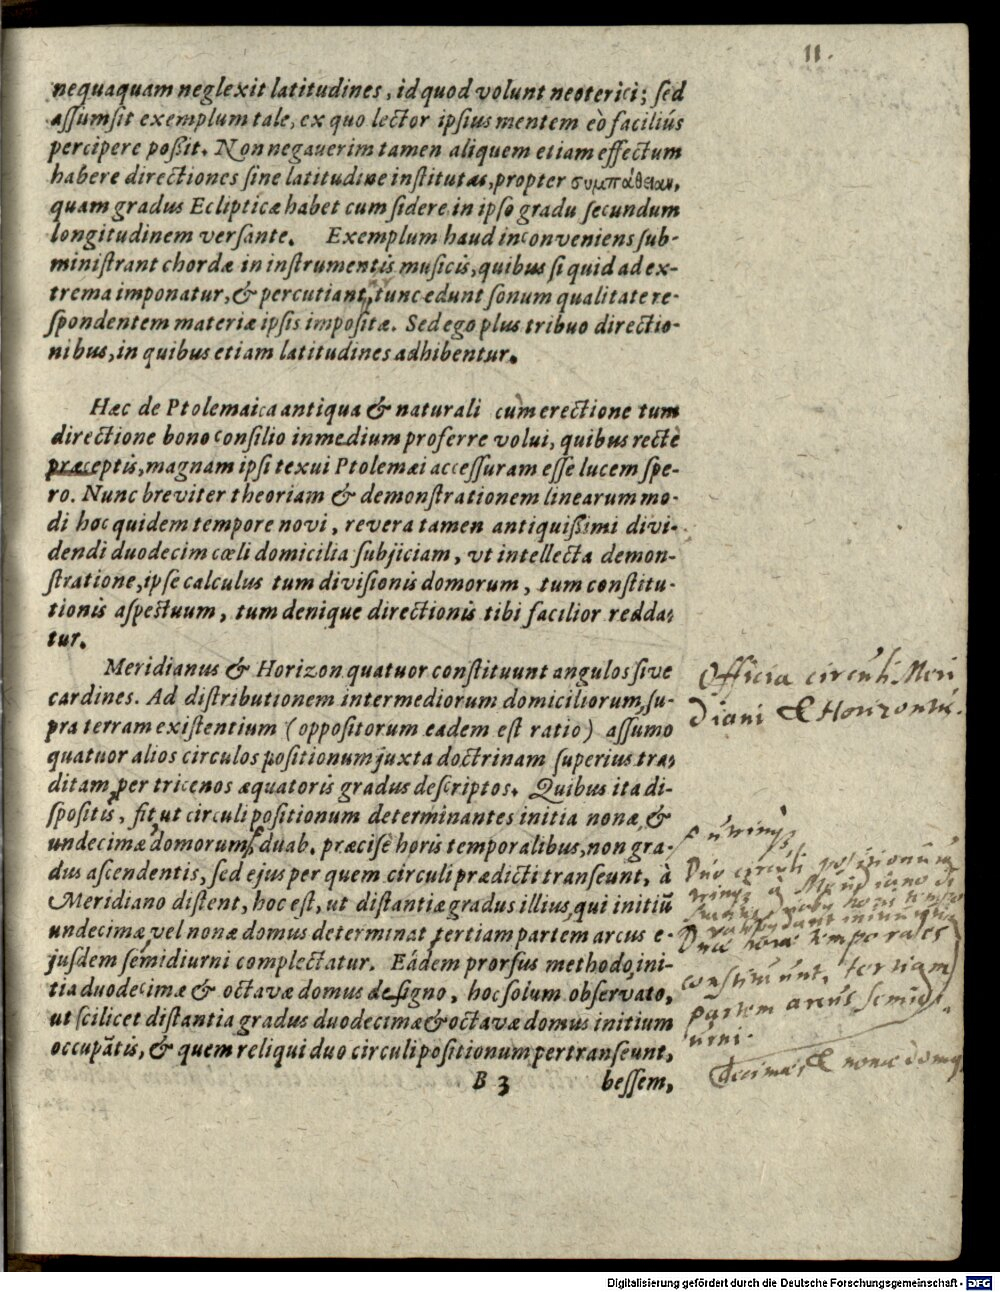 11.
nequaquam neglexit latitudines, id quod volunt neoterici; sed
assumsit exemplum tale, ex quo lector ipsius mentem eò faciliús
percipere poßit. Non negaverim tamen aliquem etiam effectum
habere directiones sine latitudine institutas, propter συμπάθειαν,
quam gradus Eclipticæ habet cum sidere in ipso gradu secundum
longitudinem versante. Exemplum haud inconveniens sub-
ministrant chordæ in instrumentis musicis, quibus si quid ad ex-
trema imponatur, & percutiant, tunc edunt sonum qualitate re-
spondentem materiæ ipsis impositæ. Sed ego plus tribuo directio-
nibus, in quibus etiam latitudines adhibentur.
Hæc de Ptolemaica antiqua & naturali cùm erectione tum
directione bono consilio in medium proferre volui, quibus rectè
præceptis, magnam ipsi texui Ptolemæi accessuram esse lucem spe-
ro. Nunc breviter theoriam & demonstrationem linearum mo-
di hoc quidem tempore novi, revera tamen antiquißimi divi-
dendi duodecim cœli domicilia subjiciam, vt intellecta demon-
stratione, ipse calculus tum divisionis domorum, tum constitu-
tionis aspectuum, tum denique directionis tibi facilior redda-
tur.
Meridianus & Horizon quatuor constituunt angulos sive
cardines. Ad distributionem intermediorum domiciliorum, su-
pra terram existentium (oppositorum eadem est ratio) assumo
quatuor alios circulos positionum juxta doctrinam superius tra-
ditam, per tricenos æquatoris gradus descriptos. Quibus ita di-
spositis, fit, ut circuli positionum determinantes initia nonæ &
undecimæ domorum, duab. præcisè horis temporalibus, non gra-
dus ascendentis, sed ejus per quem circuli prædicti transeunt, à
Meridiano distent, hoc est, ut distantiæ gradus illius, qui initiū
undecimæ, vel nonæ domus determinat, tertiam partem arcus e-
jusdem semidiurni complectatur. Eâdem prorsus methodo, ini-
tia duodecimæ & octavæ domus designo, hoc solum observato,
ut scilicet distantia gradus duodecimæ & octavæ domus initium
occupātis, & quem reliqui duo circuli positionum pertranseunt,
B 3
bessem,
Officia circuli Meri
Diani & Horizontis.
Duo circuli positionum
Duæ horæ temporales
constituunt, tertiam
partem arcus semidi
urni.
Decimæ, & nonæ domus
Digitalisierung gefördert durch die Deutsche Forschungsgemeinschaft - DFG